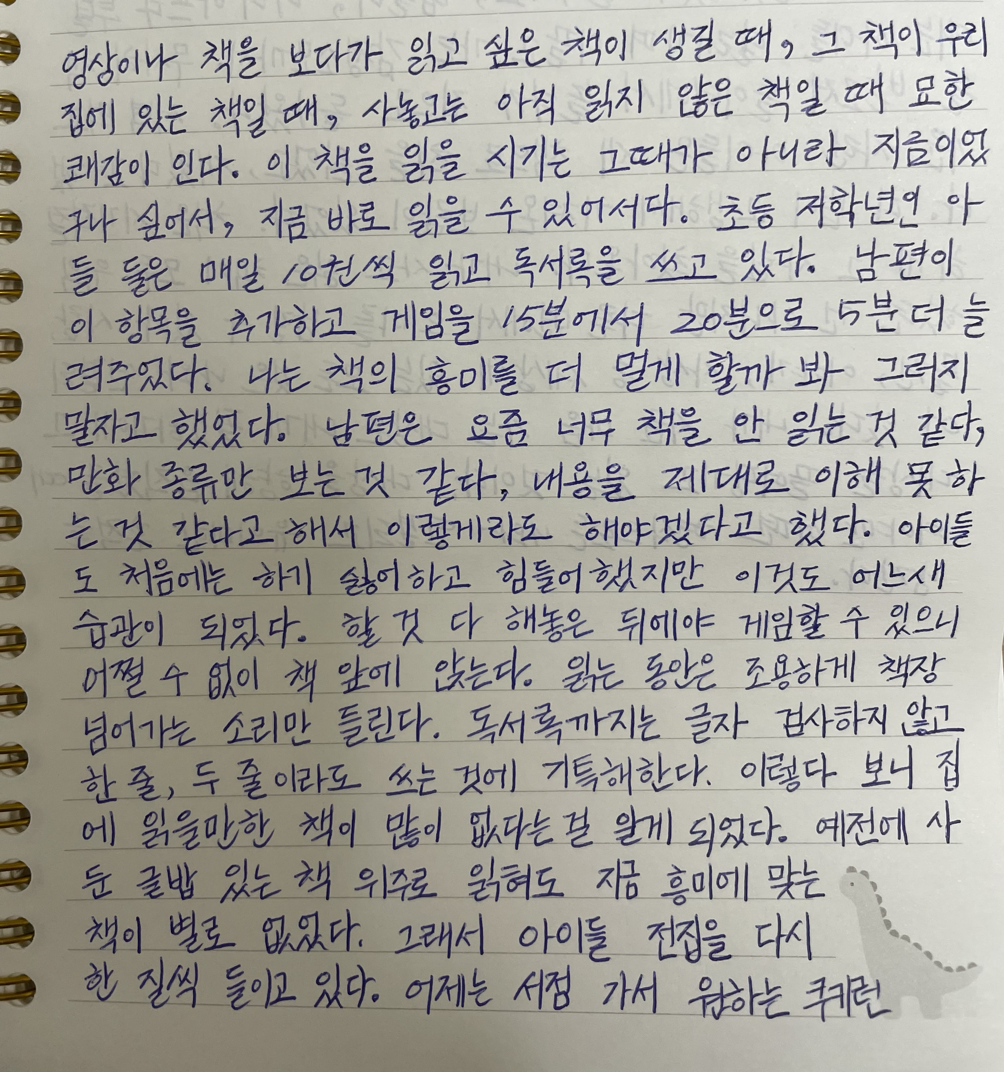 영상이나 책을 보다가 읽고 싶은 책이 생길 때, 그 책이 우리
집에 있는 책일 때, 사놓고는 아직 읽지 않은 책일 때 묘한
쾌감이 인다. 이 책을 읽을 시기는 그때가 아니라 지금이었
구나 싶어서, 지금 바로 읽을 수 있어서다. 초등 저학년인 아
들 둘은 매일 10권씩 읽고 독서록을 쓰고 있다. 남편이
이 항목을 추가하고 게임을 15분에서 20분으로 5분 더 늘
려주었다. 나는 책의 흥미를 더 멀게 할까 봐 그러지
말자고 했었다. 남편은 요즘 너무 책을 안 읽는 것 같다,
만화 종류만 보는 것 같다, 내용을 제대로 이해 못 하
는 것 같다고 해서 이렇게라도 해야겠다고 했다. 아이들
도 처음에는 하기 싫어하고 힘들어했지만 이것도 어느새
습관이 되었다. 할 것 다 해놓은 뒤에야 게임할 수 있으니
어쩔 수 없이 책 앞에 앉는다. 읽는 동안은 조용하게 책장
넘어가는 소리만 들린다. 독서록까지는 글자 검사하지 않고
한 줄, 두 줄이라도 쓰는 것에 기특해한다. 이렇다 보니 집
에 읽을만한 책이 많이 없다는 걸 알게 되었다. 예전에 사
둔 글밥 있는 책 위주로 읽혀도 지금 흥미에 맞는
책이 별로 없었다. 그래서 아이들 전집을 다시
한 질씩 들이고 있다. 어제는 서점 가서 원하는 쿠키런